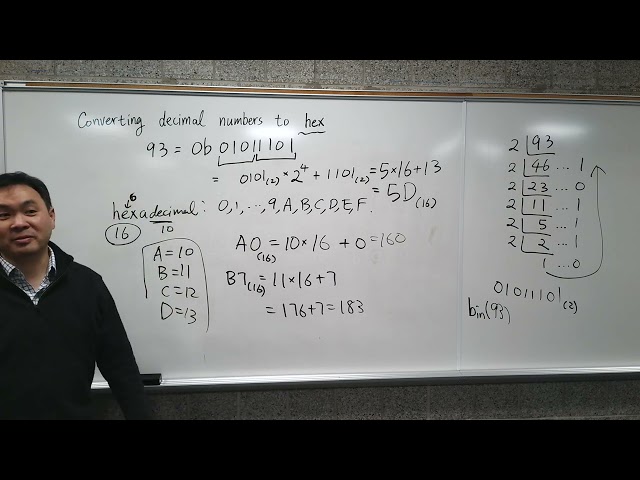 Converting decimal numbers to hex
93 = 0b 01011101
= 0101(2) × 2^4 + 1101(2) = 5×16+13
= 5D(16)
6
hexadecimal : 0,1,...,9,A,B,C,D,E,F.
16 10
A=10
B=11
C=12
D=13
A0(16) = 10×16 + 0 = 160
B7(16) = 11×16+7
= 176+7=183
2 93
2 46 ... 1
2 23 ... 0
2 11 ... 1
2 5 ... 1
2 2 ... 1
1 ... 0
01011101(2)
bin(93)